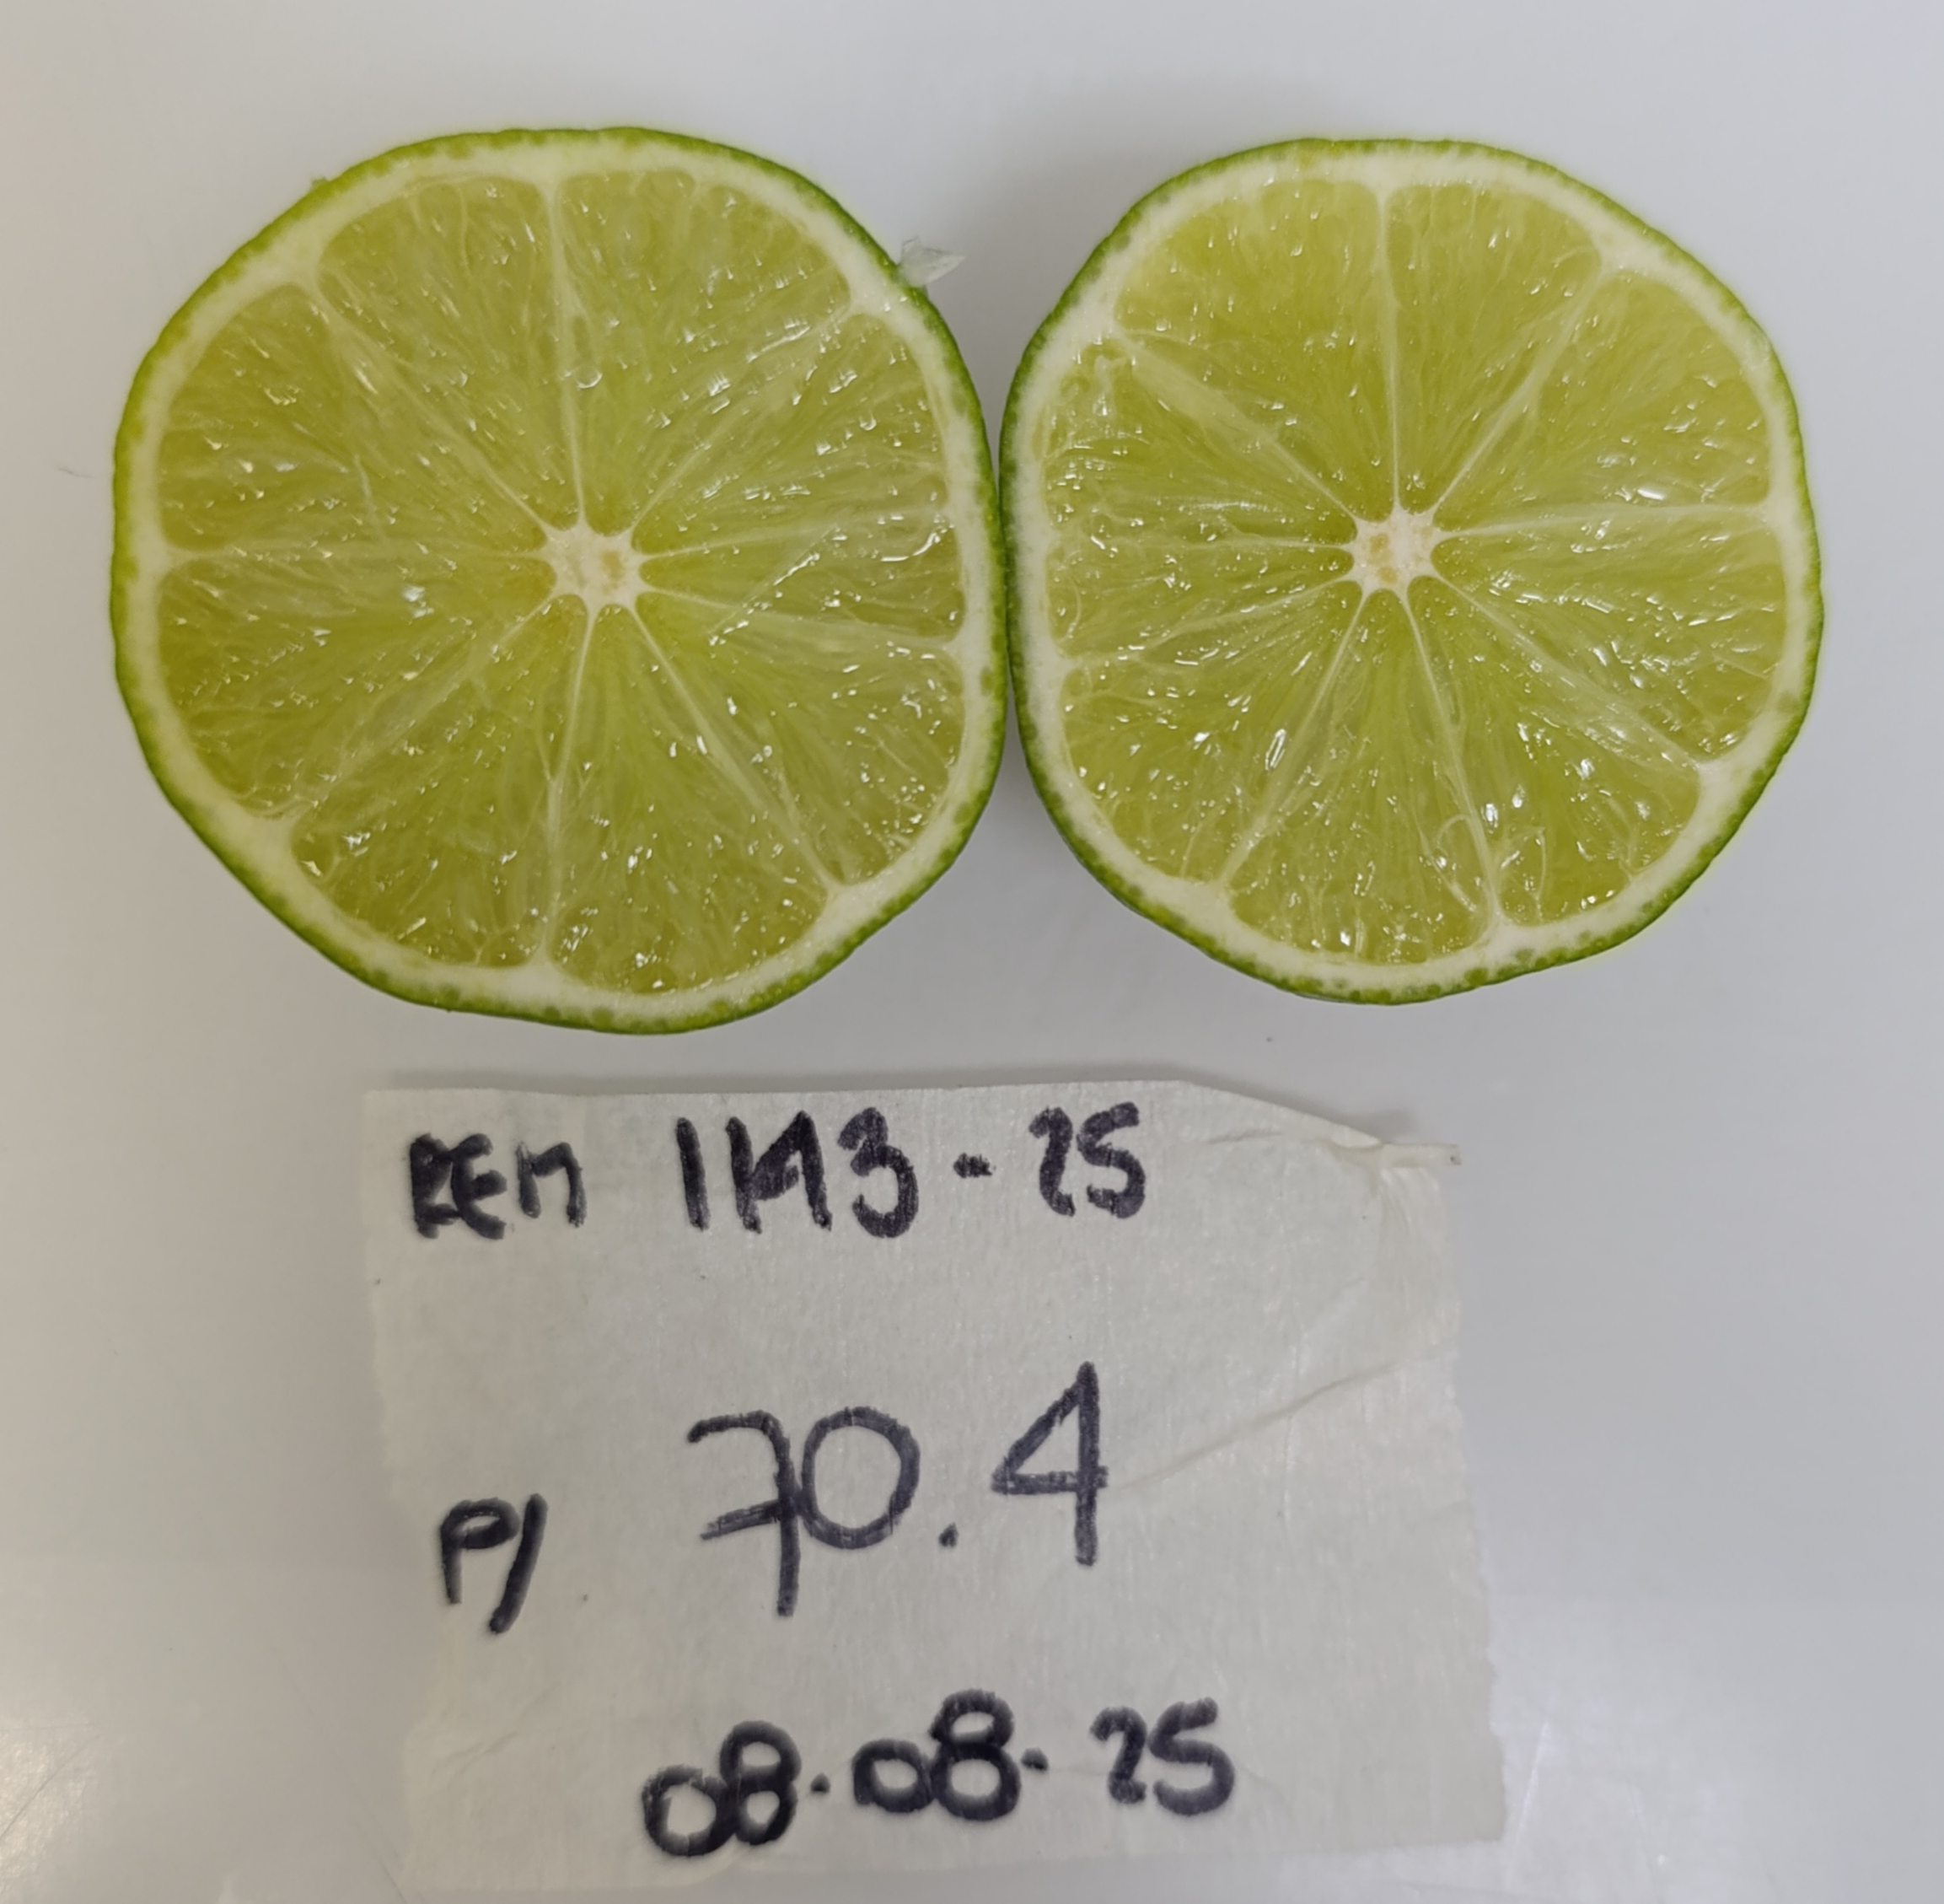 REM 1143-25
P/ 70.4
08.08-25